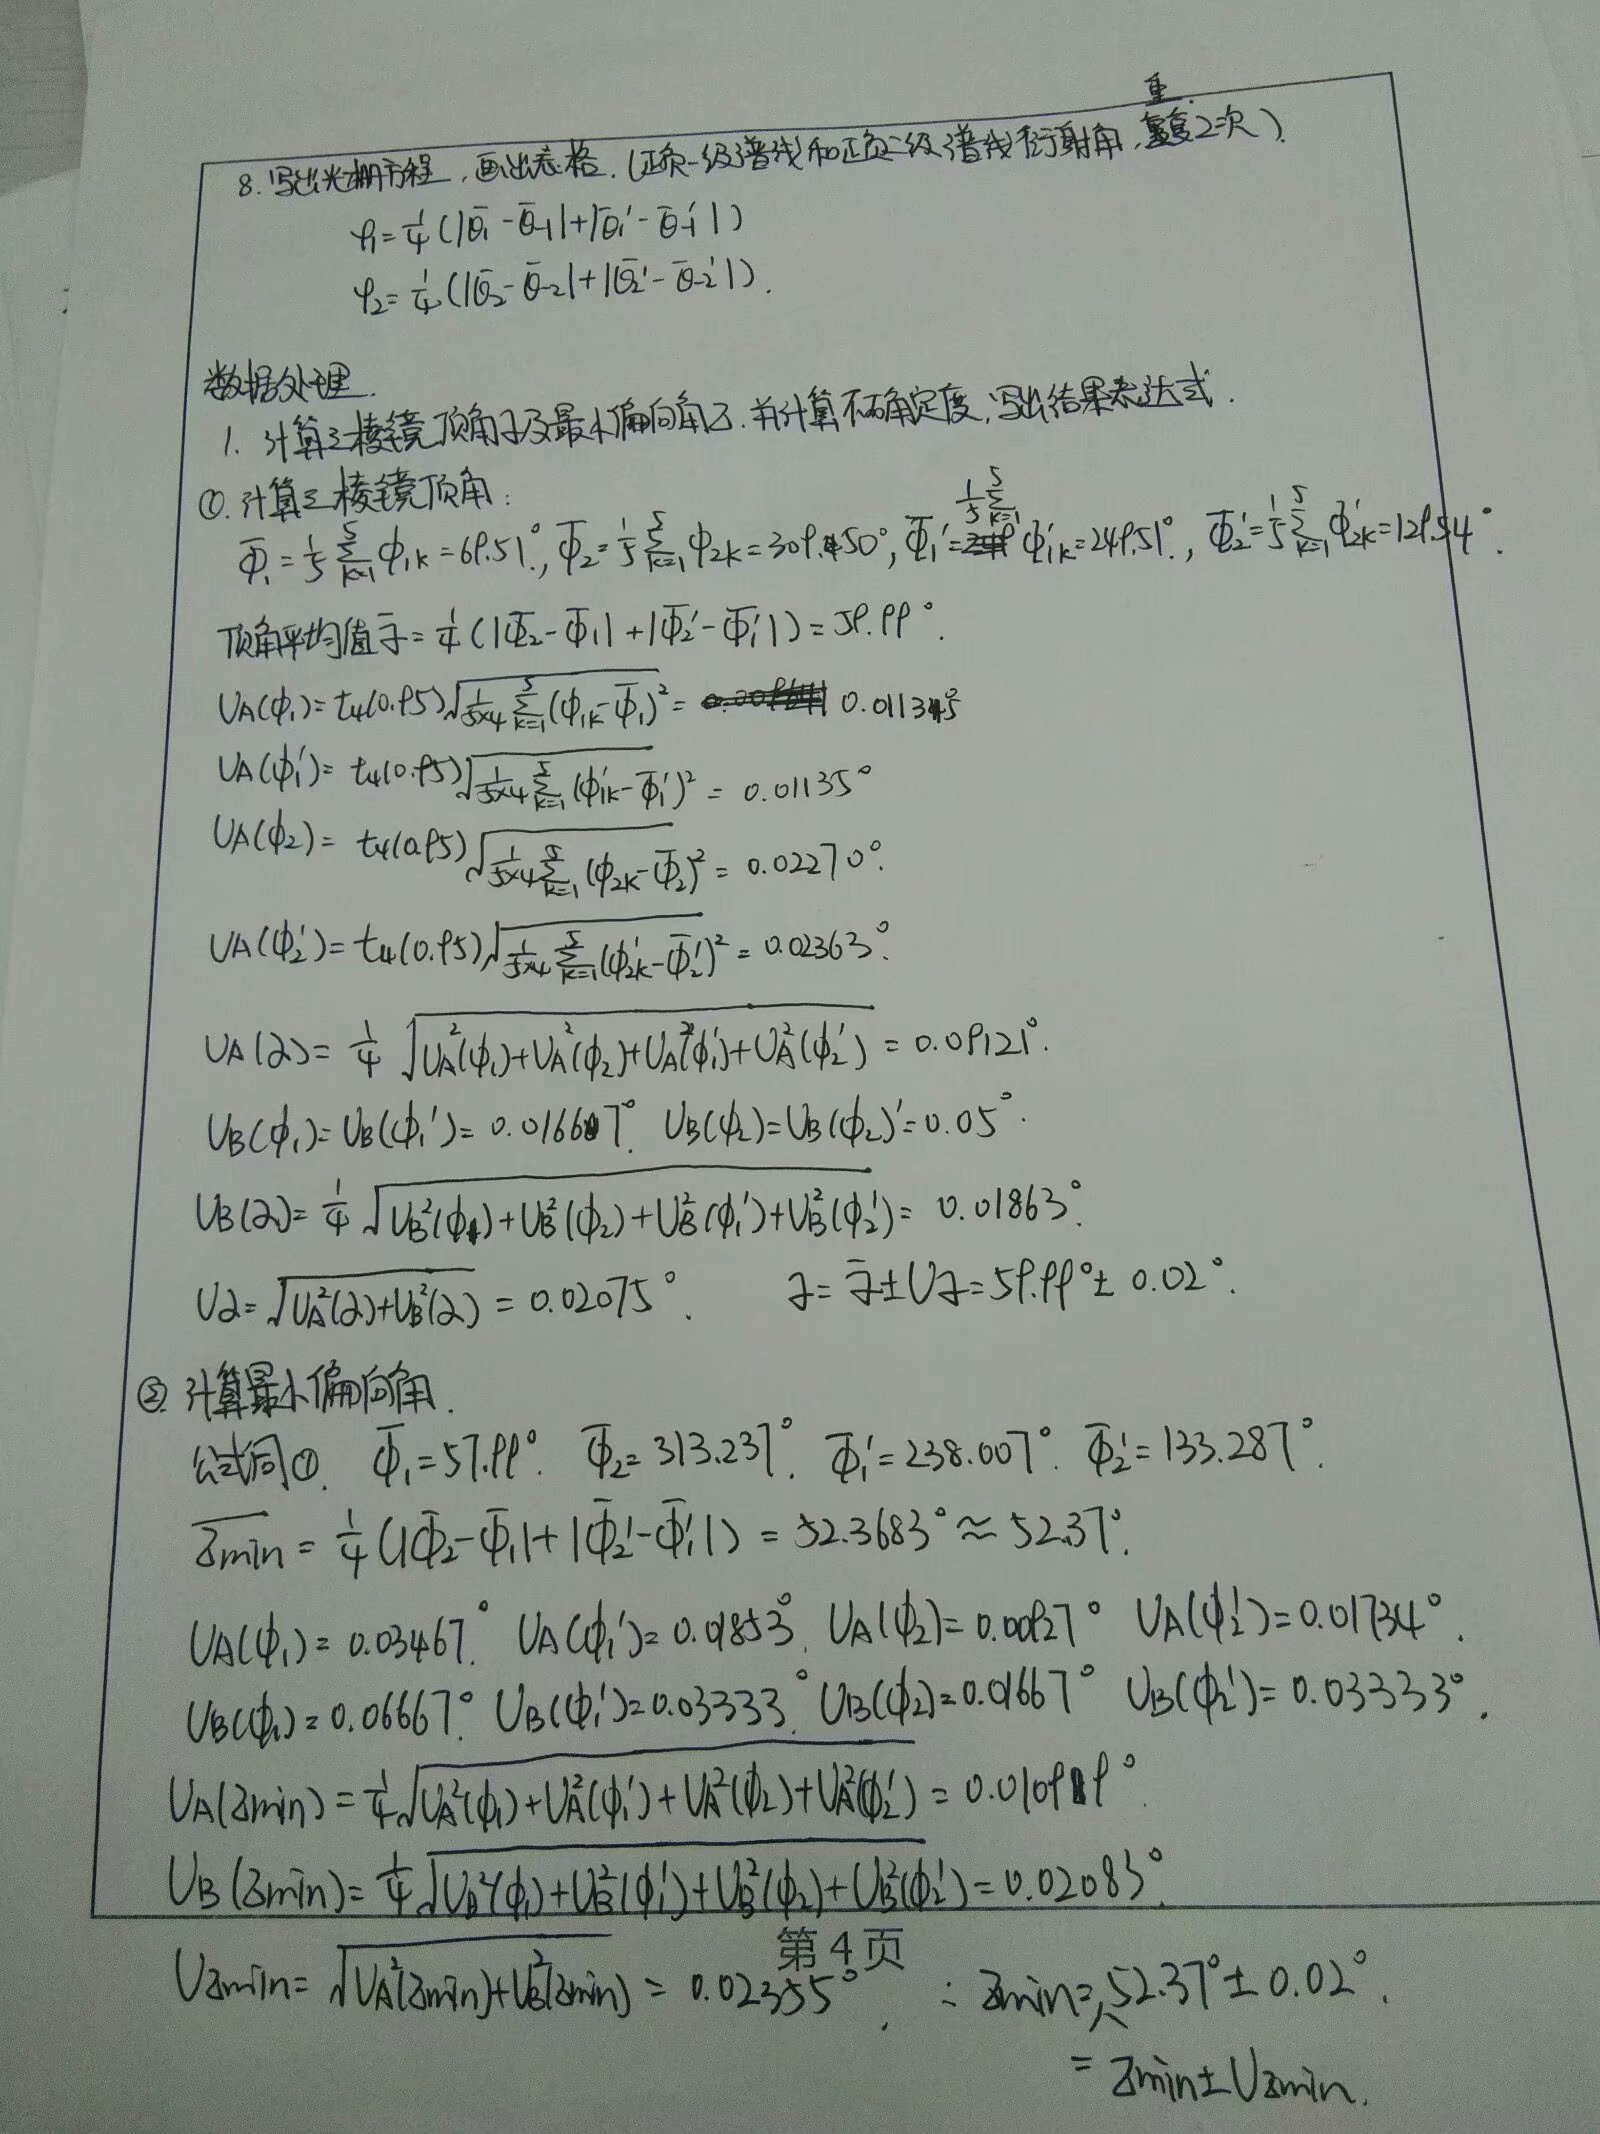 8. 写出光栅方程，画出表格．(正负一级谱线和正负二级谱线衍射角，重复2次)
φ₁=¼(|θ̄₁-θ̄₋₁|+|θ̄₁'-θ̄₋₁'|)
φ₂=¼(|θ̄₂-θ̄₋₂|+|θ̄₂'-θ̄₋₂'|).
数据处理.
1. 计算三棱镜顶角α及最小偏向角δ，并计算不确定度，写出结果表达式.
①. 计算三棱镜顶角:
Φ̄₁=1/5 Σ(k=1→5) Φ₁k=69.51°, Φ̄₂=1/5 Σ(k=1→5) Φ₂k=309.50°, Φ̄₁'=1/5 Σ(k=1→5) Φ'₁k=249.51°, Φ̄₂'=1/5 Σ(k=1→5) Φ'₂k=129.54°.
顶角平均值ᾱ=¼(|Φ̄₂-Φ̄₁|+|Φ̄₂'-Φ̄₁'|)=59.99°.
UA(ϕ₁)=t₄(0.95)√(1/(5×4) Σ(k=1→5) (ϕ₁k-Φ̄₁)²)= 0.01135°
UA(ϕ₁')=t₄(0.95)√(1/(5×4) Σ(k=1→5) (ϕ'₁k-Φ̄₁')²)=0.01135°
UA(ϕ₂)=t₄(0.95)√(1/(5×4) Σ(k=1→5) (ϕ₂k-Φ̄₂)²)=0.02270°.
UA(ϕ₂')=t₄(0.95)√(1/(5×4) Σ(k=1→5) (ϕ'₂k-Φ̄₂')²)=0.02363°.
UA(α)=¼√(UA²(ϕ₁)+UA²(ϕ₂)+UA²(ϕ₁')+UA²(ϕ₂'))=0.09121°.
UB(ϕ₁)=UB(ϕ₁')=0.01667°. UB(ϕ₂)=UB(ϕ₂)'=0.05°.
UB(α)=¼√(UB²(ϕ₁)+UB²(ϕ₂)+UB²(ϕ₁')+UB²(ϕ₂'))=0.01863°.
Uα=√(UA²(α)+UB²(α))=0.02075°. α=ᾱ±Uα=59.99°±0.02°.
②. 计算最小偏向角.
公式同①. Φ̄₁=57.99°. Φ̄₂=313.237°. Φ̄₁'=238.007°. Φ̄₂'=133.287°.
δ̄min=¼(|Φ̄₂-Φ̄₁|+|Φ̄₂'-Φ̄₁'|)=52.3683°≈52.37°.
UA(ϕ₁)=0.03467°. UA(ϕ₁')=0.01853°. UA(ϕ₂)=0.00927° UA(ϕ₂')=0.01734°.
UB(ϕ₁)=0.06667°. UB(ϕ₁')=0.03333°. UB(ϕ₂)=0.01667° UB(ϕ₂')=0.03333°.
UA(δmin)=¼√(UA²(ϕ₁)+UA²(ϕ₁')+UA²(ϕ₂)+UA²(ϕ₂'))=
UB(δmin)=¼√(UB²(ϕ₁)+UB²(ϕ₁')+UB²(ϕ₂)+UB²(ϕ₂'))=0.02083°.
第 4 页
Uδmin=√(UA²(δmin)+UB²(δmin))=0.02355°. ∴δmin=52.37°±0.02°.
=δmin±Uδmin.